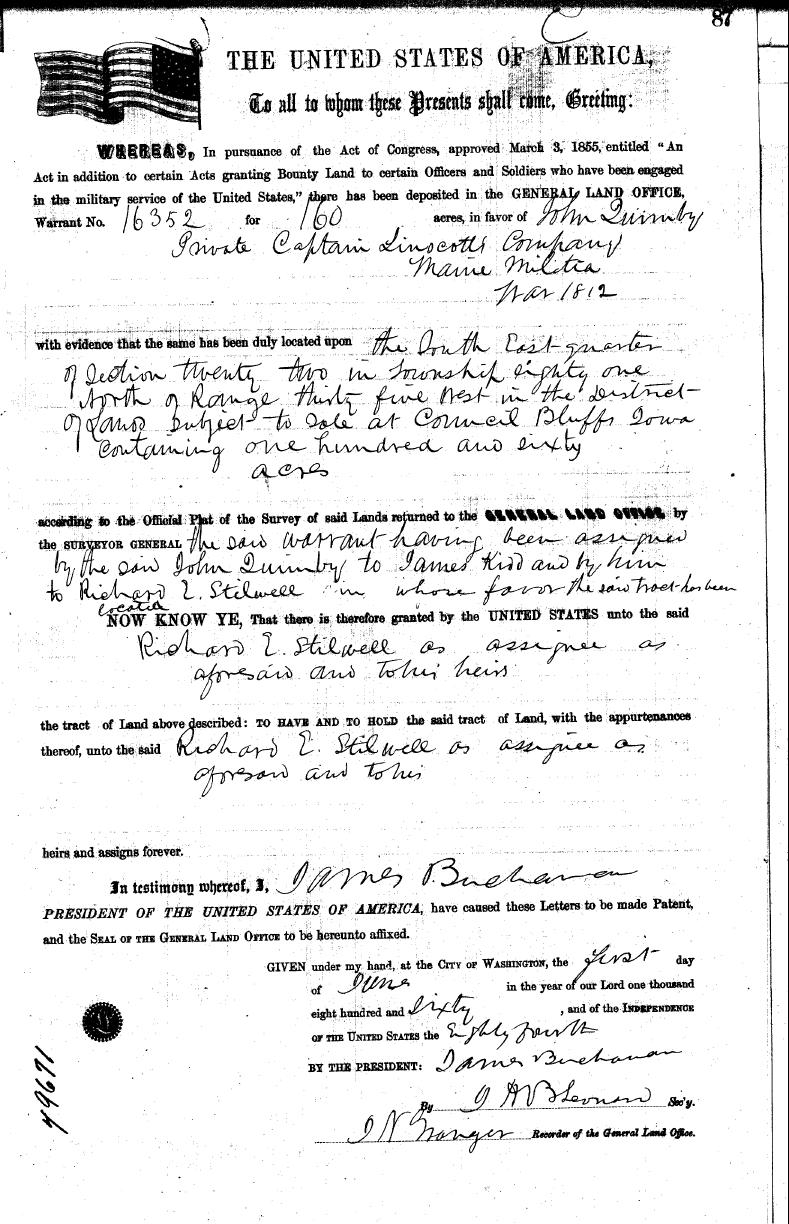 87
THE UNITED STATES OF AMERICA,
To all to whom these Presents shall come, Greeting:
WHEREAS, In pursuance of the Act of Congress, approved March 3, 1855, entitled "An
Act in addition to certain Acts granting Bounty Land to certain Officers and Soldiers who have been engaged
in the military service of the United States," there has been deposited in the GENERAL LAND OFFICE,
Warrant No. 16352 for 160 acres, in favor of John Quimby
Private Captain Linscotts Company
Maine Militia
War 1812
with evidence that the same has been duly located upon the South East quarter
of Section twenty two in Township eighty one
North of Range thirty five West in the District
of Lands Subject to Sale at Council Bluffs Iowa
Containing one hundred and sixty
acres
according to the Official Plat of the Survey of said Lands returned to the GENERAL LAND OFFICE by
the SURVEYOR GENERAL the said warrant having been assigned
by the said John Quimby to James Kidd and by him
to Richard E. Stilwell in whose favor the said tract has been
located
NOW KNOW YE, That there is therefore granted by the UNITED STATES unto the said
Richard E. Stilwell as assignee as
aforesaid and to his heirs
the tract of Land above described: TO HAVE AND TO HOLD the said tract of Land, with the appurtenances
thereof, unto the said Richard E. Stilwell as assignee as
aforesaid and to his
heirs and assigns forever.
In testimony whereof, I, James Buchanan
PRESIDENT OF THE UNITED STATES OF AMERICA, have caused these Letters to be made Patent,
and the SEAL OF THE GENERAL LAND OFFICE to be hereunto affixed.
GIVEN under my hand, at the CITY OF WASHINGTON, the first day
of June in the year of our Lord one thousand
eight hundred and Sixty, and of the INDEPENDENCE
OF THE UNITED STATES the Eighty fourth
BY THE PRESIDENT: James Buchanan
By J A B Leonard Sec'y.
J N Granger Recorder of the General Land Office.
49671